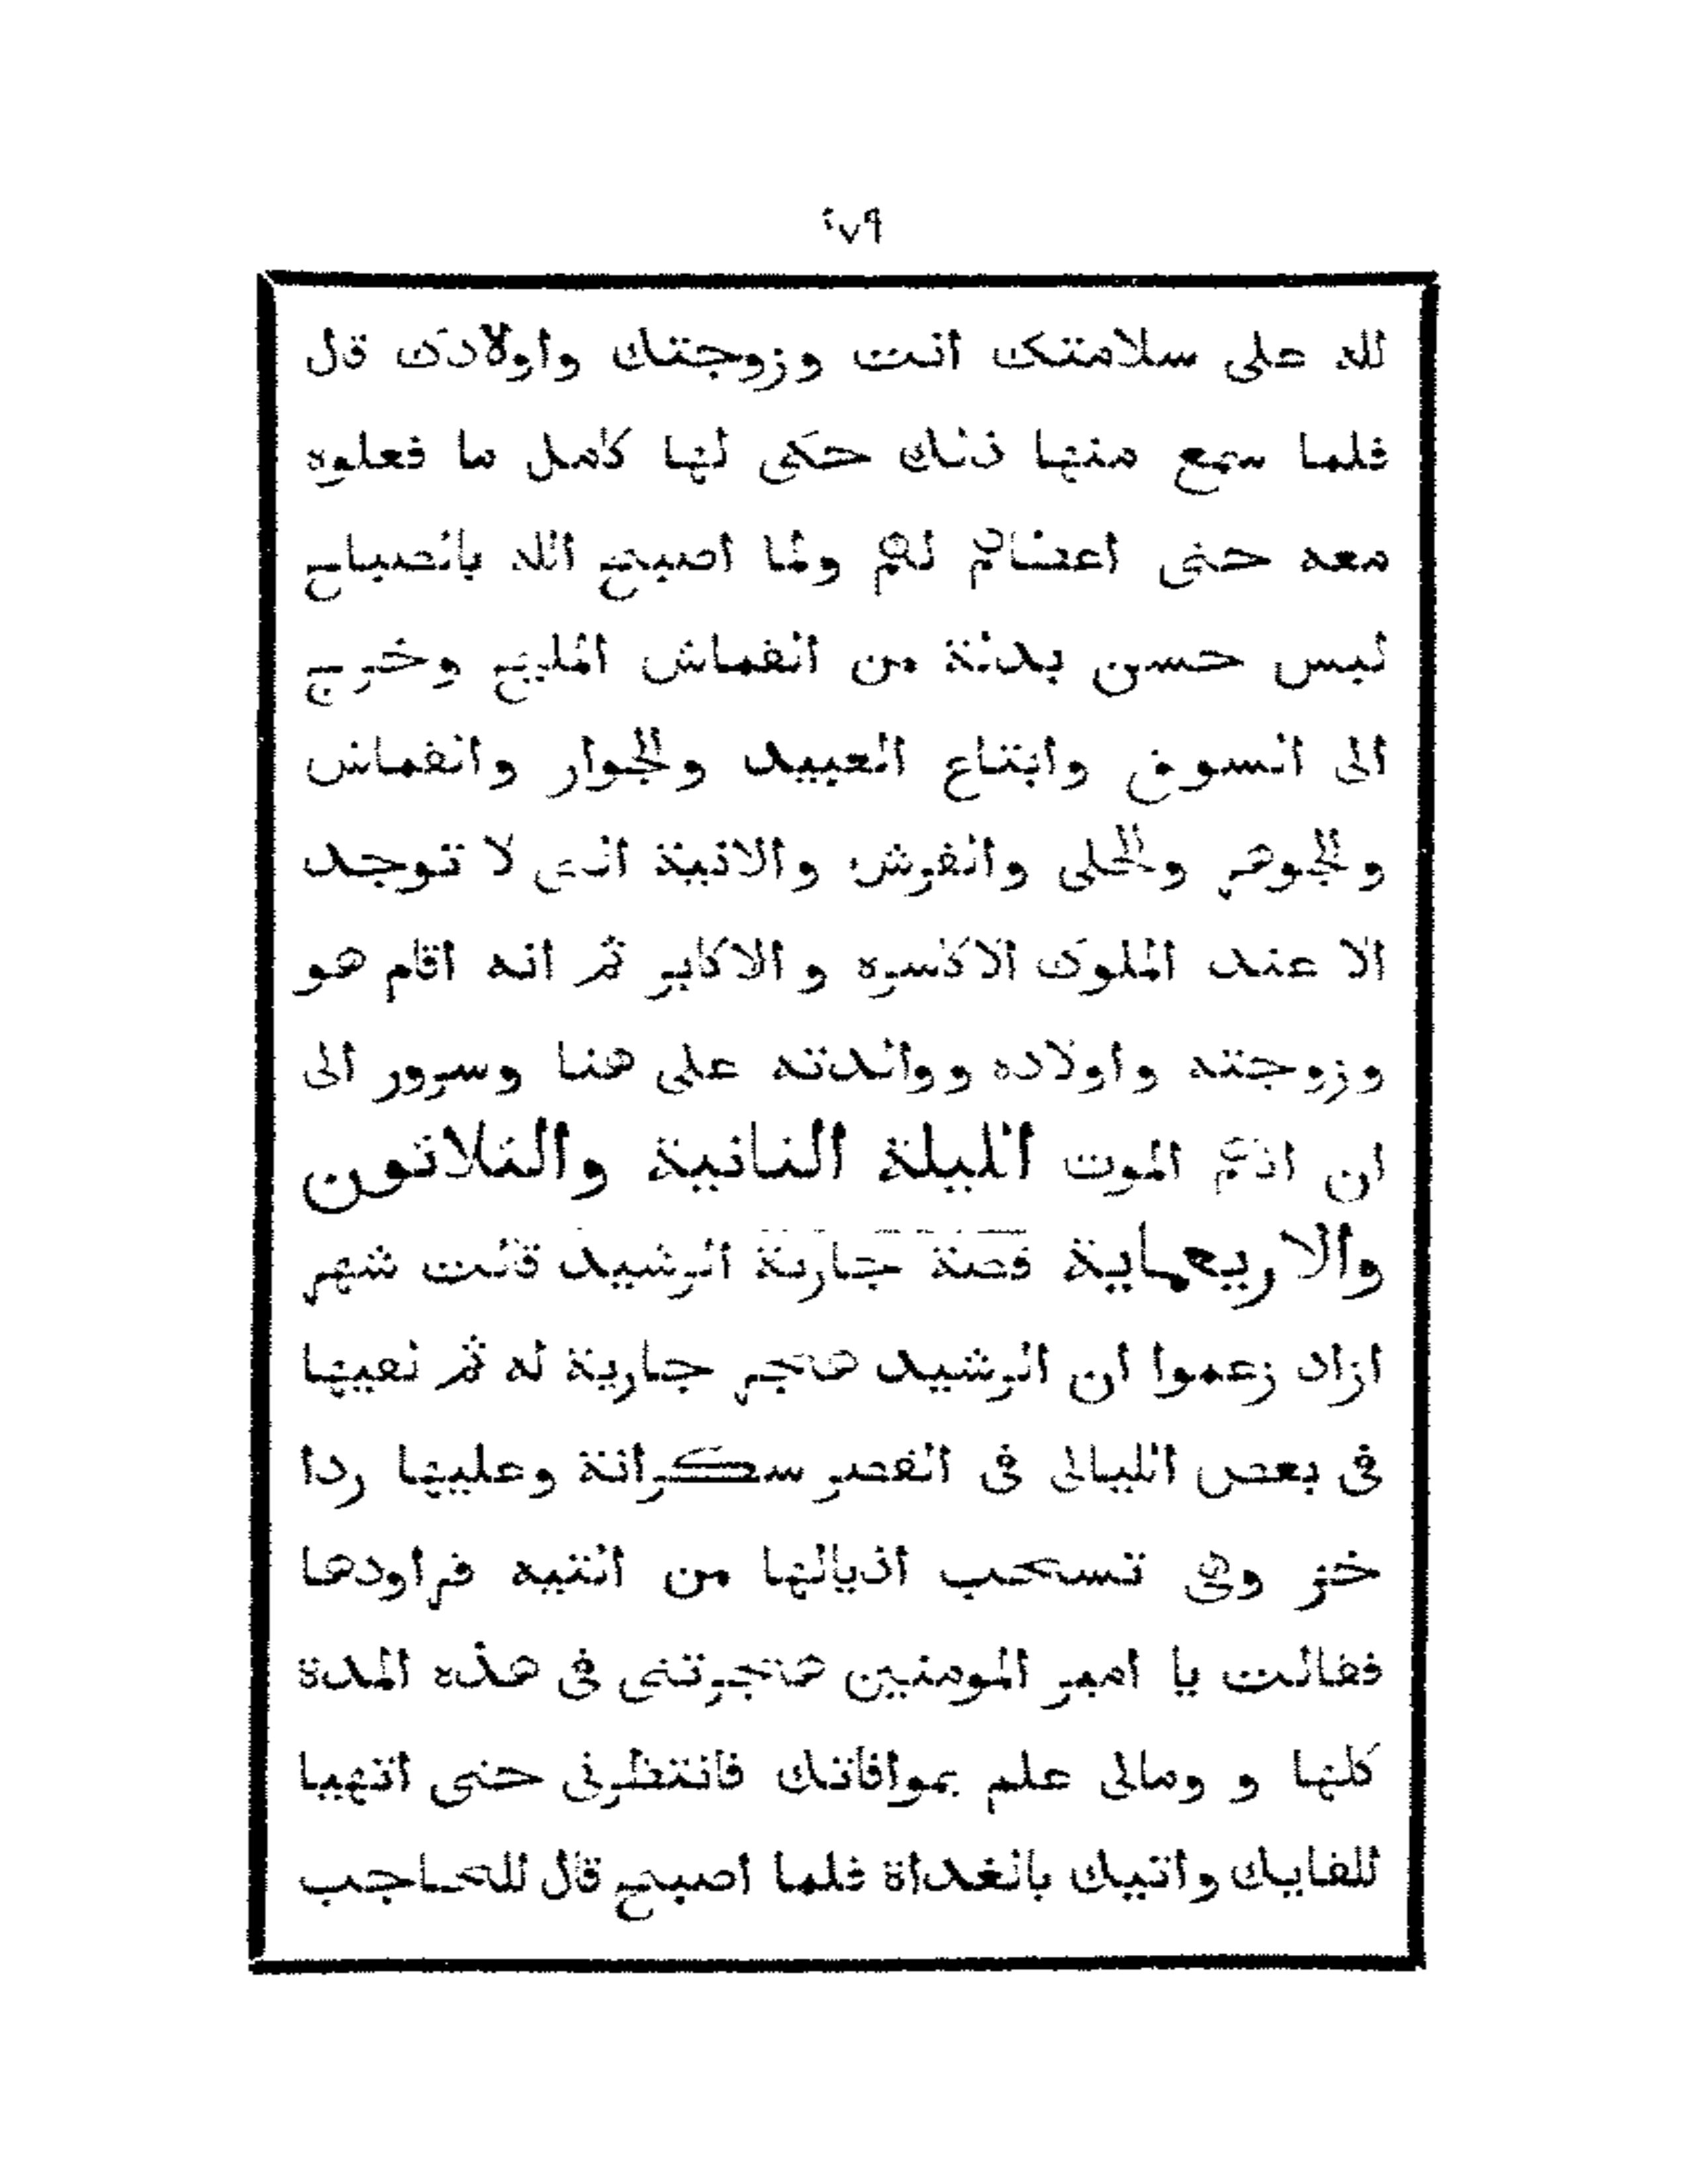 ٤٧٩
لله على سلامتك انت وزوجتك واولادك قال
فلما سمع منها ذلك حكى لها كامل ما فعلوه
معه حتى اعطاهم لهم ولما اصبح الله بالصباح
لبس حسن بدلة من القماش المليح وخرج
الى السوق وابتاع العبيد والجوار والقماش
والجوهر والحلى والفرش والانية التى لا توجد
الا عند الملوك الاكاسره والاكابر ثم انه اقام هو
وزوجته واولاده ووالدته على هنا وسرور الى
ان اتاهم الموت الليلة الثانية والثلاثون
والاربعماية قصة جارية الرشيد قالت شهر
ازاد زعموا ان الرشيد هجر جارية له ثم لقيها
فى بعض الليالى فى القصر سكرانة وعليها ردا
خز وهى تسحب اذيالها من التيه فراودها
فقالت يا امير المومنين هجرتنى فى هذه المدة
كلها و ومالى علم بموافاتك فانتظرنى حتى اتهيا
للقايك واتيك بالغداة فلما اصبح قال للحاجب